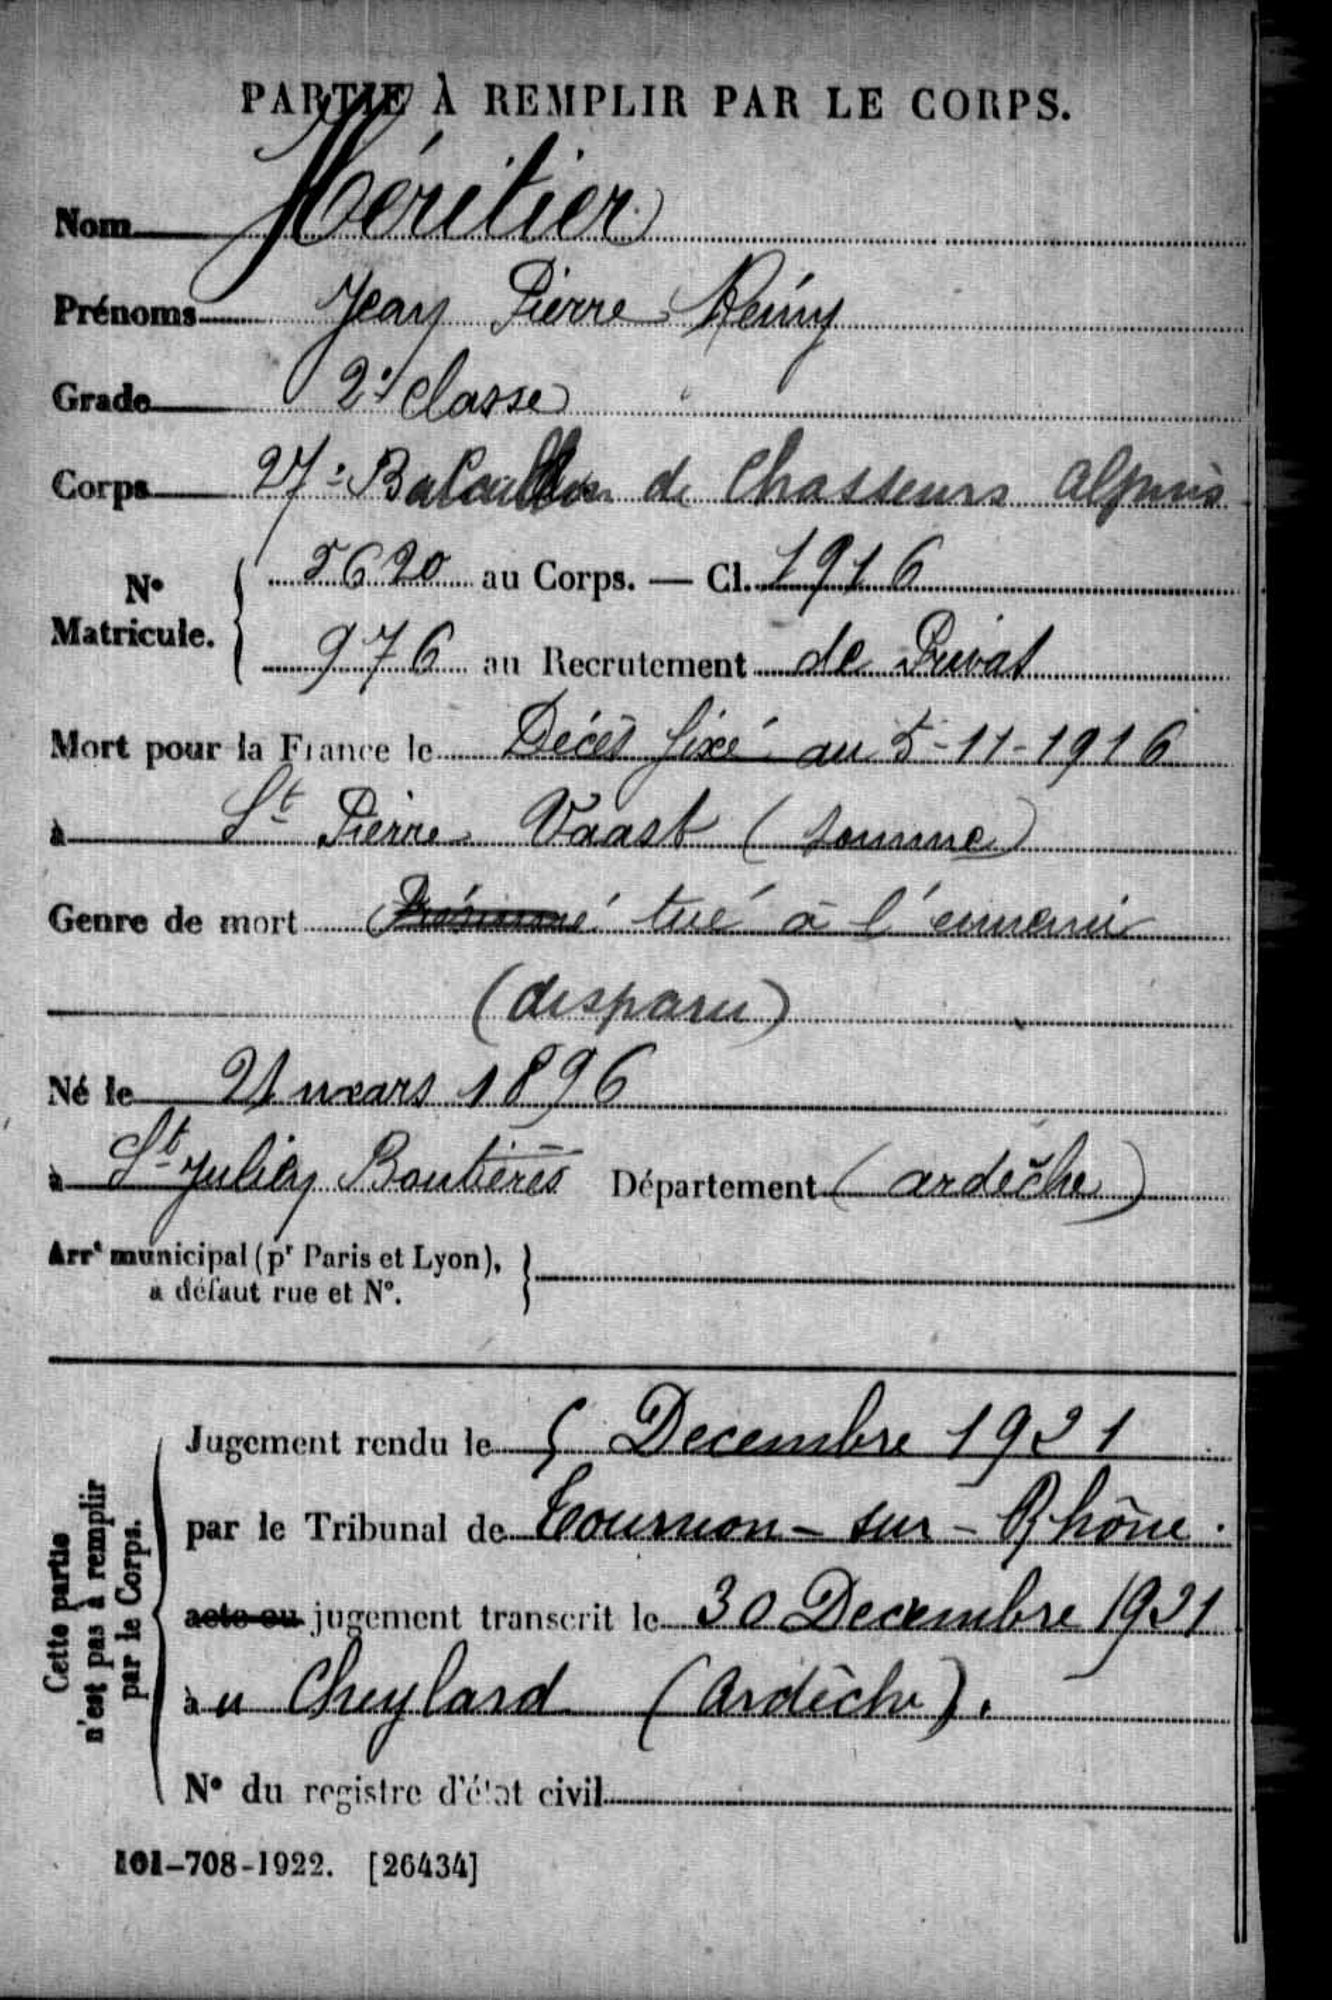 PARTIE À REMPLIR PAR LE CORPS.
Nom Héritier
Prénoms Jean Pierre Rémy
Grade 2e classe
Corps 27e Bataillon de Chasseurs alpins
No Matricule. { 5620 au Corps. — Cl. 1916
976 au Recrutement de Privas
Mort pour la France le Décès fixé au 5-11-1916
à St Pierre Vaast (somme)
Genre de mort Présumé tué à l'ennemi
(disparu)
Né le 21 mars 1896
à St Julien Boutières Département (ardèche)
Arrt municipal (pr Paris et Lyon), }
à défaut rue et No.
Cette partie
n'est pas à remplir
par le Corps.
Jugement rendu le 5 Decembre 1921
par le Tribunal de Tournon-sur-Rhône.
acte ou jugement transcrit le 30 Decembre 1921
à u Cheylard (Ardèche).
No du registre d'état civil
101-708-1922. [26434]